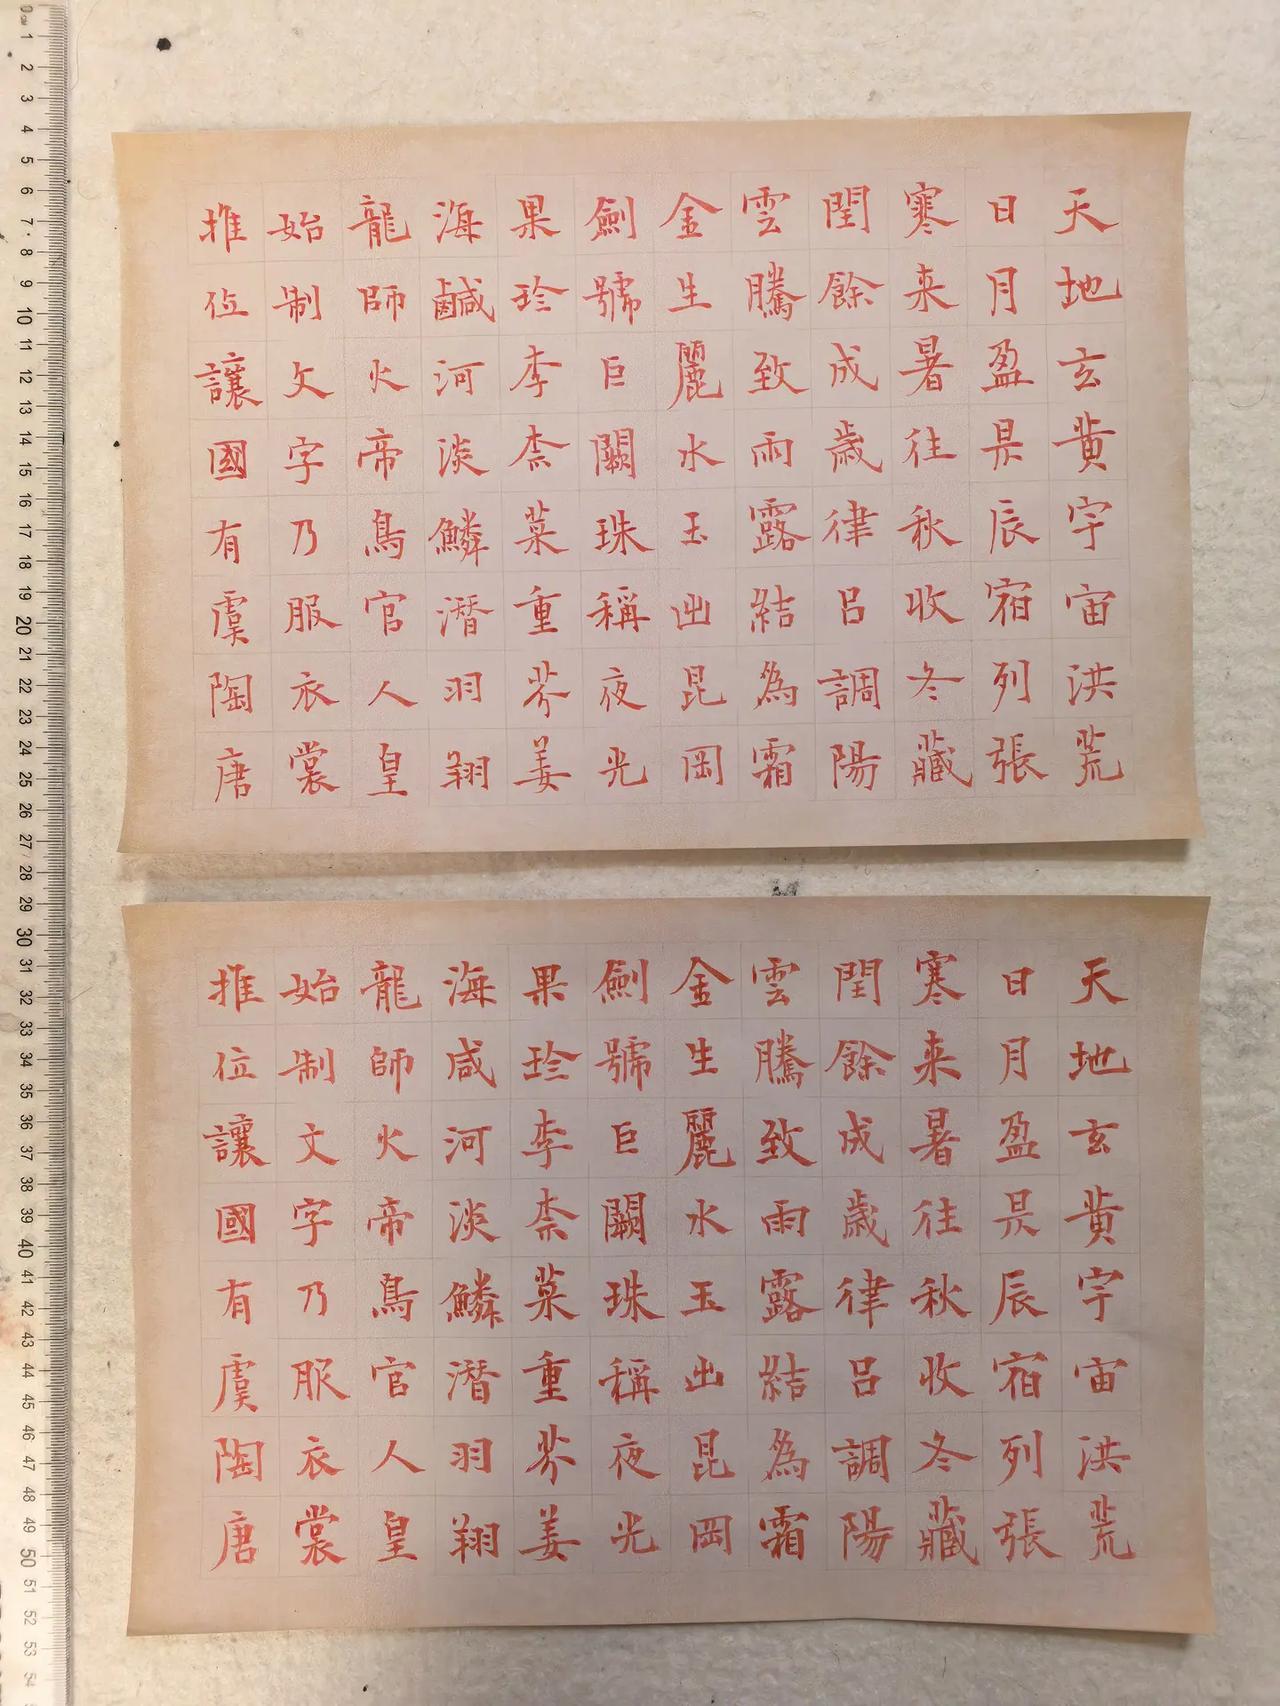 天地玄黃宇宙洪荒
日月盈昃辰宿列張
寒来暑往秋收冬藏
閏餘成歲律呂調陽
雲騰致雨露結為霜
金生麗水玉出崑岡
劍號巨闕珠稱夜光
果珍李柰菜重芥姜
海鹹河淡鱗潛羽翔
龍師火帝鳥官人皇
始制文字乃服衣裳
推位讓國有虞陶唐
天地玄黃宇宙洪荒
日月盈昃辰宿列張
寒来暑往秋收冬藏
閏餘成歲律呂調陽
雲騰致雨露結為霜
金生麗水玉出崑岡
劍號巨闕珠稱夜光
果珍李柰菜重芥姜
海咸河淡鱗潛羽翔
龍師火帝鳥官人皇
始制文字乃服衣裳
推位讓國有虞陶唐
0 1 2 3 4 5 6 7 8 9 10 11 12 13 14 15 16 17 18 19 20 21 22 23 24 25 26 27 28 29 30 31 32 33 34 35 36 37 38 39 40 41 42 43 44 45 46 47 48 49 50 51 52 53 54